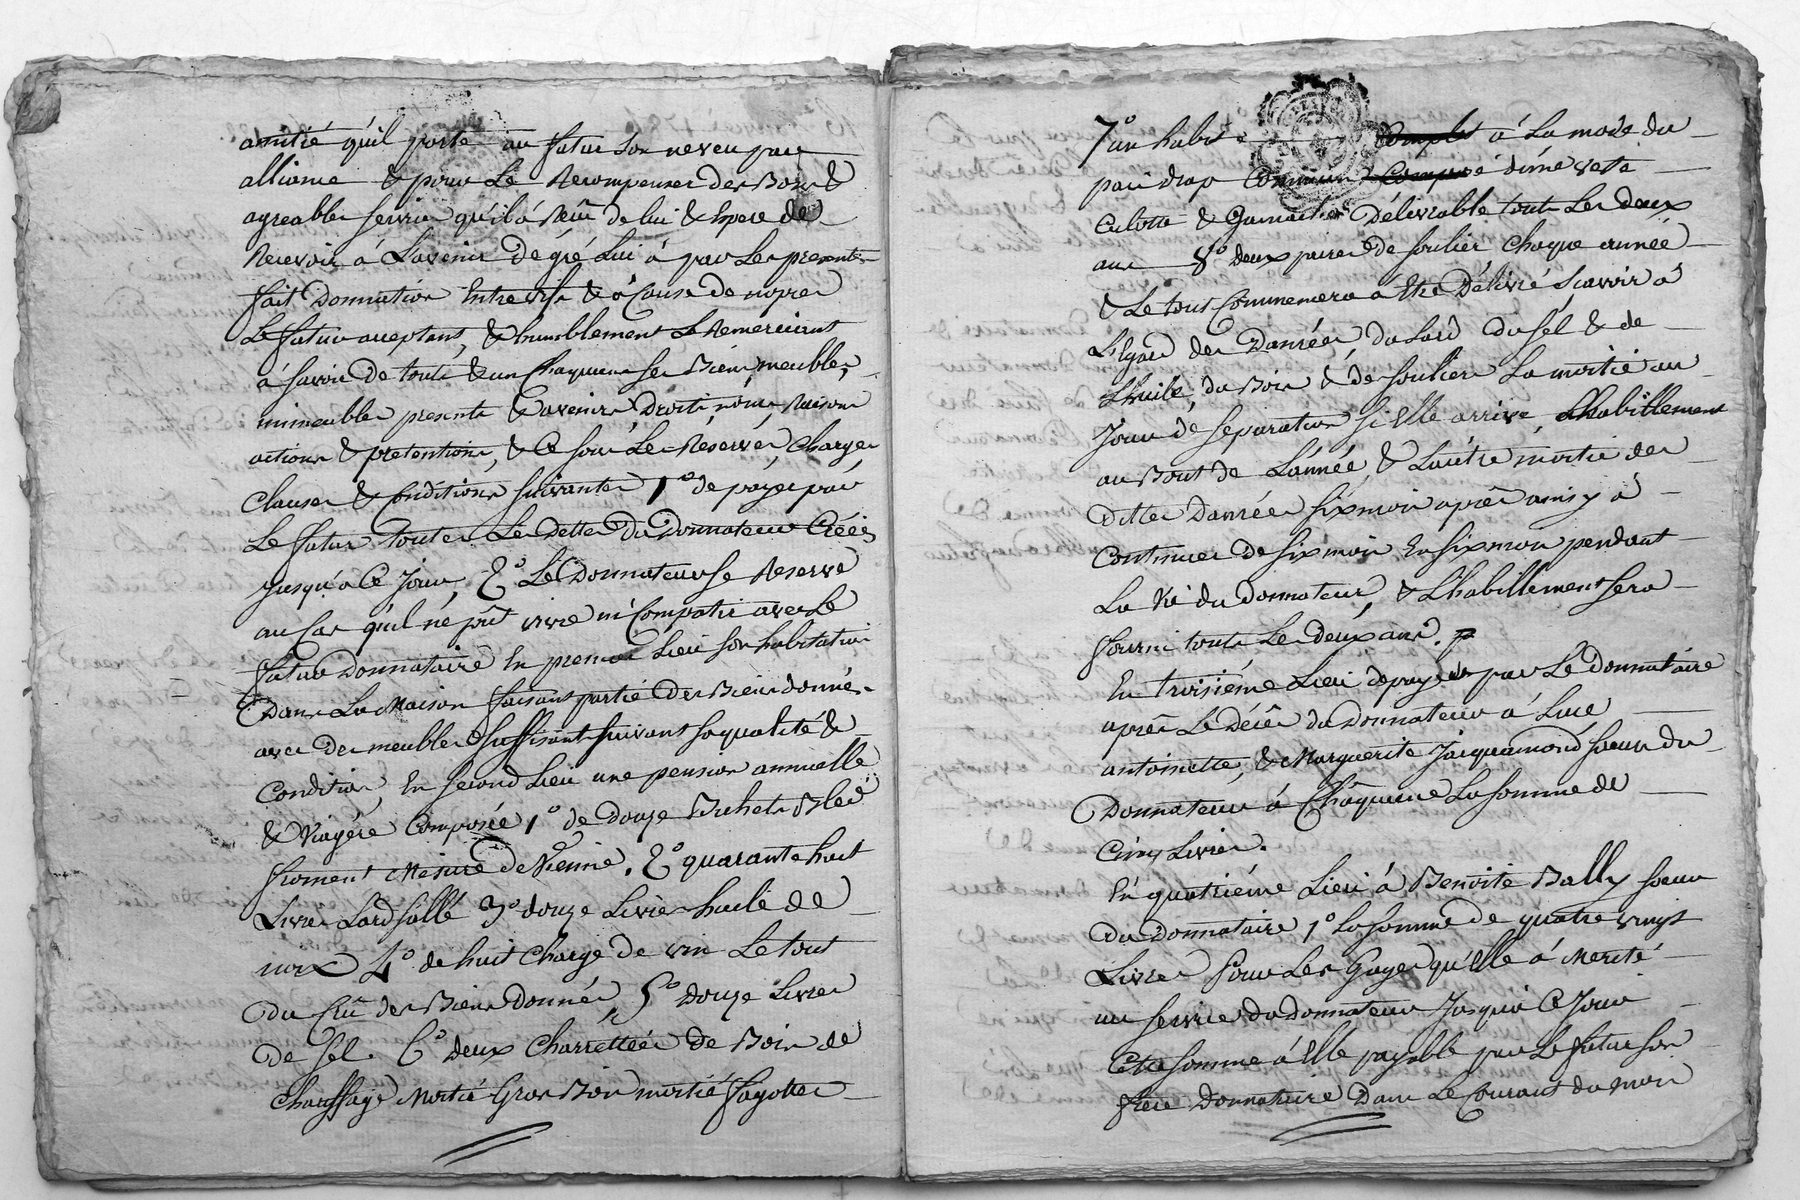 amitié qu'il porte au futur son neveu par
alliance & pour Le Recompenser des Bons &
agreables services qu'il à Reçû de lui & Espere de
Recevoir à L'avenir De gré Lui à par Les presentes
fait Donnation Entrevifs & à Cause de nopces
Le futur acceptant, & humblement Le Remerciant
à savoir De touts & un Chaquuns ses Biens, meubles,
immeubles presents & avenirs Droits, noms, Raisons
actions & pretentions, & Ce sous Les Réserves, Charges
Clauses & Conditions suivantes 1º de payer par
Le futur toutes Les Dettes Du Donnateur Créées
jusqu'a Ce jour, 2º Le Donnateur se Reserve
au Cas qu'il né pût vivre ni Compatir avec Le
futur Donnataire En premier Lieu son habitation
Dans La Maison faisant partie Des Biens donnés
avec des meubles suffisants suivant sa qualité &
Condition, En second Lieu une pension annuelle
& Viagére Composée 1º de Douze Bichets Bled
froment Mesure De Vienne. 2º quarante huit
Livres Lard sallé 3º douze Livres huile de
noix 4º de huit Charge de vin Le tout
Du Crû des Biens Donnés, 5º Douze Livres
De sel. 6º Deux Charrettées de Bois de
Chauffage Moitié Gros Bois moitié fagottes
7º un habit Complet à La mode du
pais drap Commun Composé d'une veste
Culotte & Guimaches Délivrable touts Les deux
ans 8º Deux paires de soulier Chaque année
& Le tout Commencera a Etre Délivré Sçavoir à
L'Egard des Danrées Du Lard du sél & de
L'huile, du Bois & de souliers La moitié au
Jour de separation si Elle arrive, L'habillement
au Bout de L'année & L'autre moitié des
Dittes Danrées six mois aprês ainsy à
Continuer de six mois En six mois pendant
La vie du Donnateur, & L'habillement sera
fourni touts Les deux ans.
En troisiéme Lieu de payer par Le donnataire
aprês Le Décês du Donnateur à Luce
antoinette, & Marguerite Jacquemond sœurs du
Donnateur à Châquune La somme de
Cinq Livres.
En quatriéme Lieu à Benoite Bally sœur
du Donnataire 1º La somme de quatre vingt
Livres pour Les Gages qu'Elle à Merité
au service du Donnateur Jusqu'à Ce Jour
Cette somme à Elle payable par Le futur son
frere Donnataire Dans Le Courant du mois